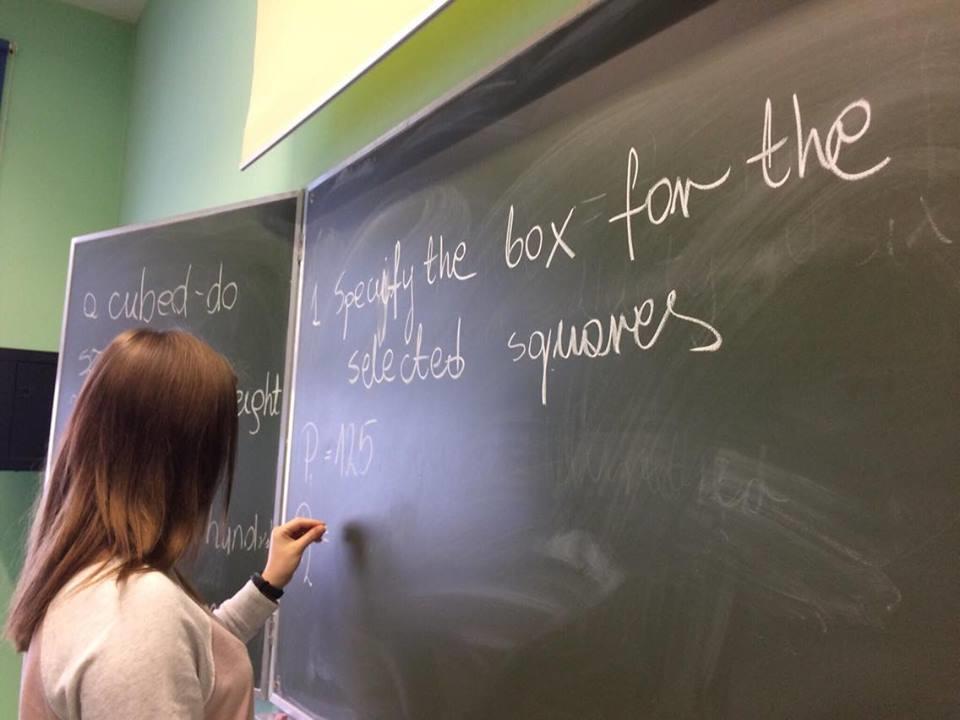 a cubed-do
eight
hund
1 Specify the box for the
selected squares
P1 = 125
P2 =